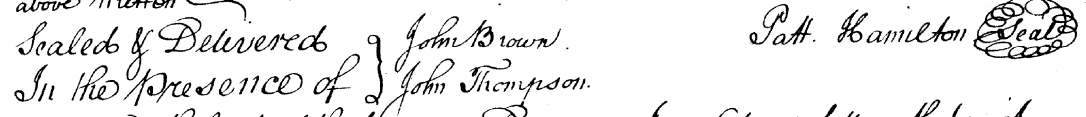 above Written
Sealed & Delivered } John Brown. Patt. Hamilton Seal
In the Presence of } John Thompson.